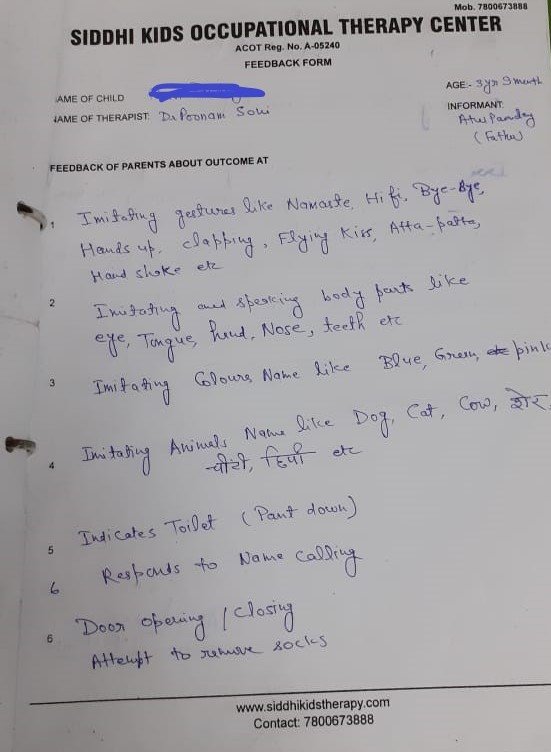 Mob. 7800673888
SIDDHI KIDS OCCUPATIONAL THERAPY CENTER
ACOT Reg. No. A-05240
FEEDBACK FORM
AGE:- 3 yr 9 month
AME OF CHILD
INFORMANT:
NAME OF THERAPIST: Dr Poonam Soni
Atul Pandey
(Father)
FEEDBACK OF PARENTS ABOUT OUTCOME AT
1 Imitating gestures like Namaste, Hi fi, Bye-Bye,
Hands up, clapping, Flying Kiss, Atta-patta,
Hand shake etc
2 Imitating and speaking body parts like
eye, Tongue, head, Nose, teeth etc
3 Imitating Colours Name like Blue, Green, pink
4 Imitating Animals Name like Dog, Cat, Cow, शेर
चीटी, etc
5 Indicates Toilet (Pant down)
6 Responds to Name Calling
6 Door opening / Closing
Attempt to remove socks
www.siddhikidstherapy.com
Contact: 7800673888